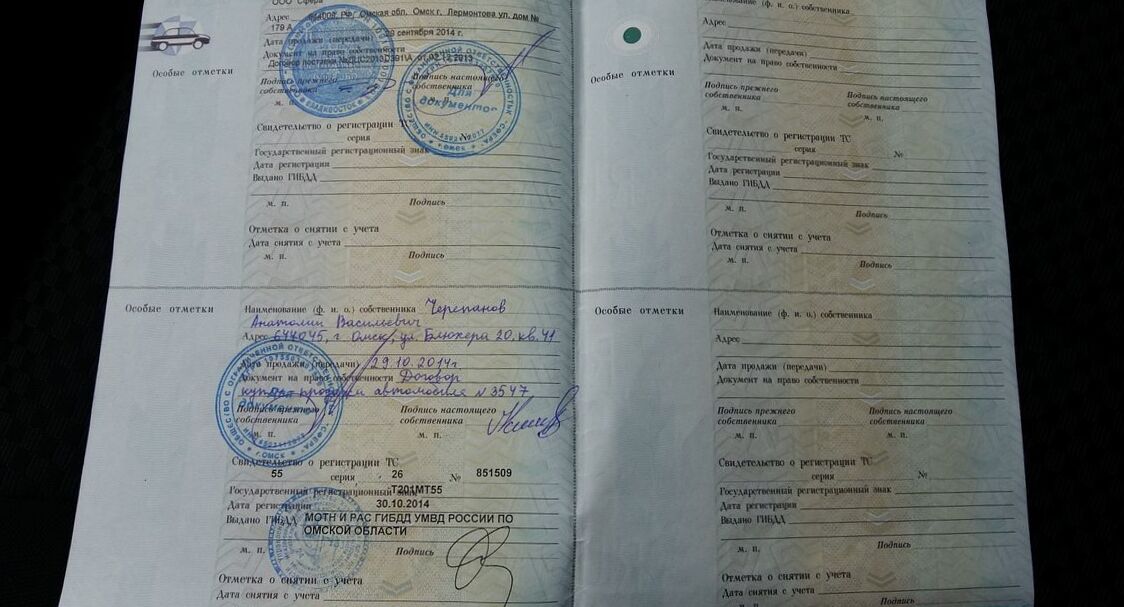 ООО "Сфера"
Адрес 644008, РФ, Омская обл, Омск г, Лермонтова ул, дом №
179 А
Дата продажи (передачи) 28 сентября 2014 г.
Документ на право собственности
Договор поставки
Особые отметки
Подпись прежнего собственника
Подпись настоящего собственника
м. п.
ВЛАДИВОСТОК
Для документов
"СФЕРА"
г. ОМСК
Свидетельство о регистрации ТС
серия №
Государственный регистрационный знак
Дата регистрации
Выдано ГИБДД
м. п. Подпись
Отметка о снятии с учета
Дата снятия с учета
м. п. Подпись
Особые отметки
Наименование (ф. и. о.) собственника Черепанов
Анатолий Васильевич
Адрес 644045, г. Омск, ул. Блюхера 20, кв. 41
Дата продажи (передачи) 29.10.2014г.
Документ на право собственности Договор
купли продажи автомобиля N 3547
Подпись прежнего собственника
Подпись настоящего собственника
м. п. м. п.
ОБЩЕСТВО С ОГРАНИЧЕННОЙ ОТВЕТСТВЕННОСТЬЮ
"СФЕРА"
Для документов
г. ОМСК
Свидетельство о регистрации ТС
55 серия 26 № 851509
Государственный регистрационный знак Т201МТ55
Дата регистрации 30.10.2014
Выдано ГИБДД МОТН И РАС ГИБДД УМВД РОССИИ ПО
ОМСКОЙ ОБЛАСТИ
м. п. Подпись
Отметка о снятии с учета
Дата снятия с учета
Наименование (ф. и. о.) собственника
Адрес
Дата продажи (передачи)
Документ на право собственности
Особые отметки
Подпись прежнего собственника
Подпись настоящего собственника
м. п. м. п.
Свидетельство о регистрации ТС
серия №
Государственный регистрационный знак
Дата регистрации
Выдано ГИБДД
м. п. Подпись
Отметка о снятии с учета
Дата снятия с учета
м. п. Подпись
Особые отметки
Наименование (ф. и. о.) собственника
Адрес
Дата продажи (передачи)
Документ на право собственности
Подпись прежнего собственника
Подпись настоящего собственника
м. п. м. п.
Свидетельство о регистрации ТС
серия №
Государственный регистрационный знак
Дата регистрации
Выдано ГИБДД
м. п. Подпись
Отметка о снятии с учета
Дата снятия с учета
Подпись